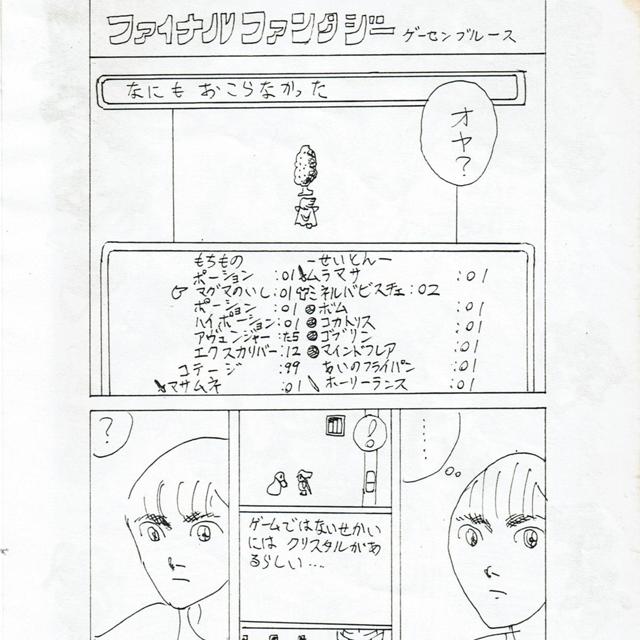 ファイナルファンタジー ゲーセンブルース
なにも おこらなかった
オヤ?
もちもの ーせいとんー
ポーション :01 ムラマサ :01
マグマのいし:01 ミネルバビスチェ:02
ポーション :01 ボム :01
ハイポーション:01 コカトリス :01
アヴェンジャー: ゴブリン :01
エクスカリバー:12 マインドフレア :01
コテージ :99 あいのフライパン :01
マサムネ :01 ホーリーランス :01
?
!
ゲームではないせかい
には クリスタルがあ
るらしい…
……